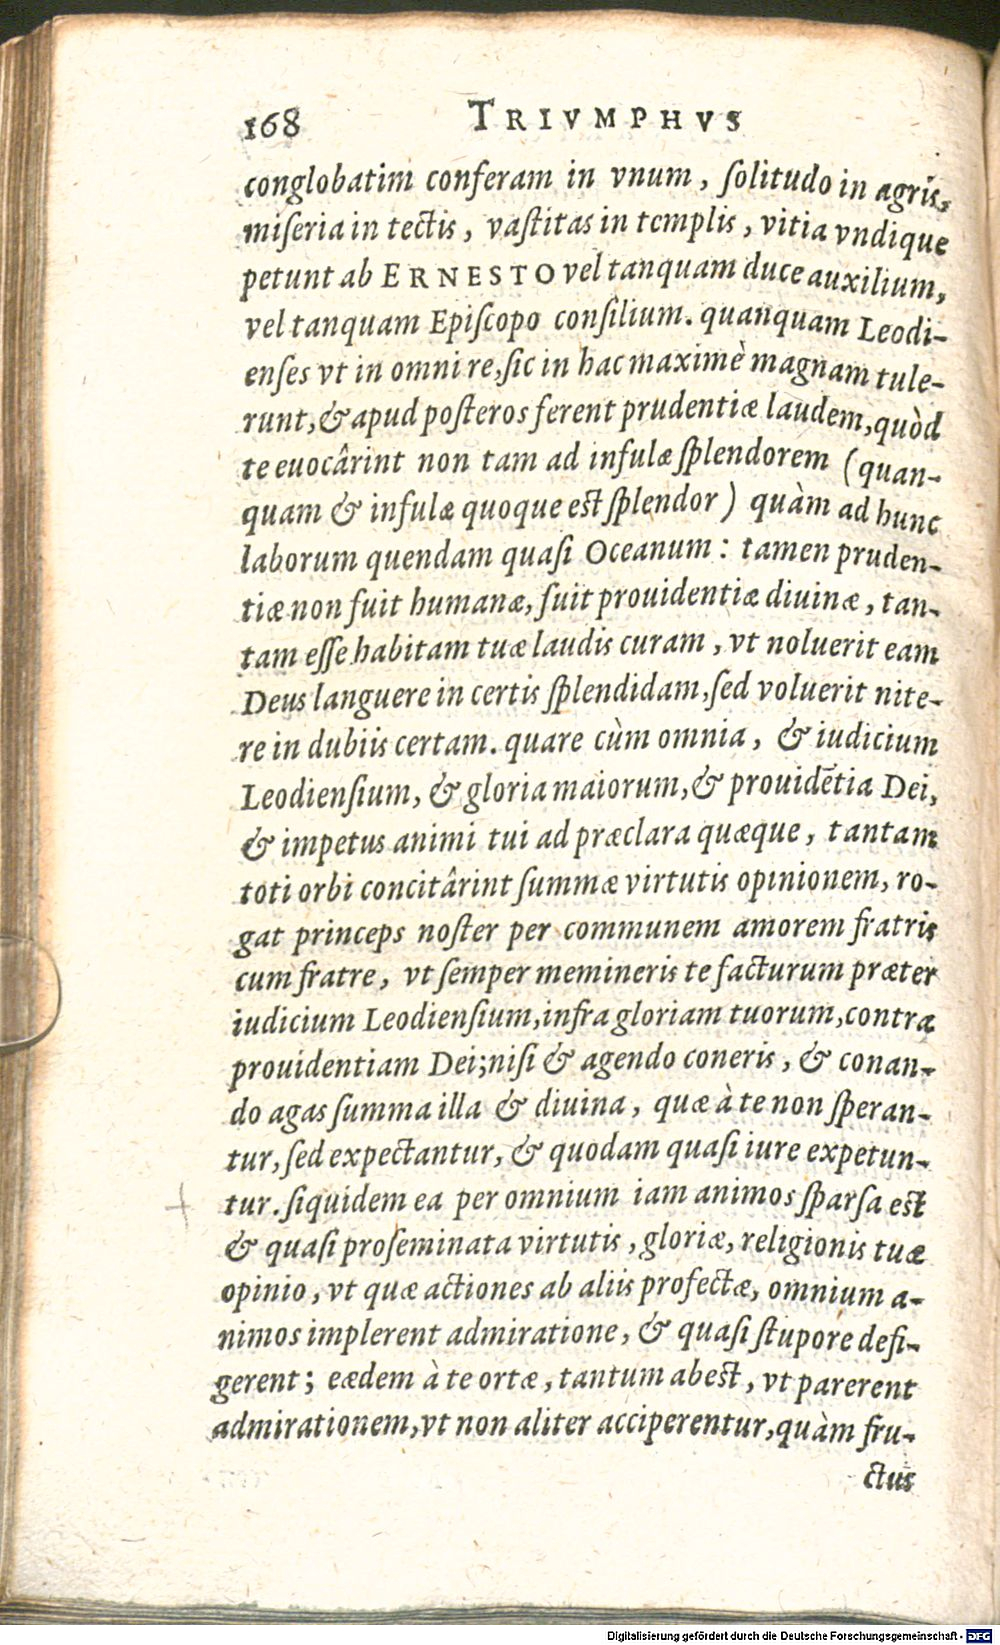 168 TRIVMPHVS
conglobatim conferam in vnum, ſolitudo in agris,
miſeria in tectis, vaſtitas in templis, vitia vndique
petunt ab ERNESTO vel tanquam duce auxilium,
vel tanquam Epiſcopo conſilium. quanquam Leodi-
enſes vt in omni re, ſic in hac maximè magnam tule-
runt, & apud poſteros ferent prudentiæ laudem, quòd
te euocârint non tam ad infulæ ſplendorem (quan-
quam & infulæ quoque eſt ſplendor) quàm ad hunc
laborum quendam quaſi Oceanum: tamen pruden-
tiæ non fuit humanæ, fuit prouidentiæ diuinæ, tan-
tam eſſe habitam tuæ laudis curam, vt noluerit eam
Deus languere in certis ſplendidam, ſed voluerit nite-
re in dubiis certam. quare cùm omnia, & iudicium
Leodienſium, & gloria maiorum, & prouidẽtia Dei,
& impetus animi tui ad præclara quæque, tantam
toti orbi concitârint ſummæ virtutis opinionem, ro-
gat princeps noſter per communem amorem fratris
cum fratre, vt ſemper memineris te facturum præter
iudicium Leodienſium, infra gloriam tuorum, contra
prouidentiam Dei; niſi & agendo coneris, & conan-
do agas ſumma illa & diuina, quæ à te non ſperan-
tur, ſed expectantur, & quodam quaſi iure expetun-
tur. ſiquidem ea per omnium iam animos ſparſa eſt
& quaſi proſeminata virtutis, gloriæ, religionis tuæ
opinio, vt quæ actiones ab aliis profectæ, omnium a-
nimos implerent admiratione, & quaſi ſtupore defi-
gerent; eædem à te ortæ, tantum abeſt, vt parerent
admirationem, vt non aliter acciperentur, quàm fru-
ctus
Digitalisierung gefördert durch die Deutsche Forschungsgemeinschaft - DFG